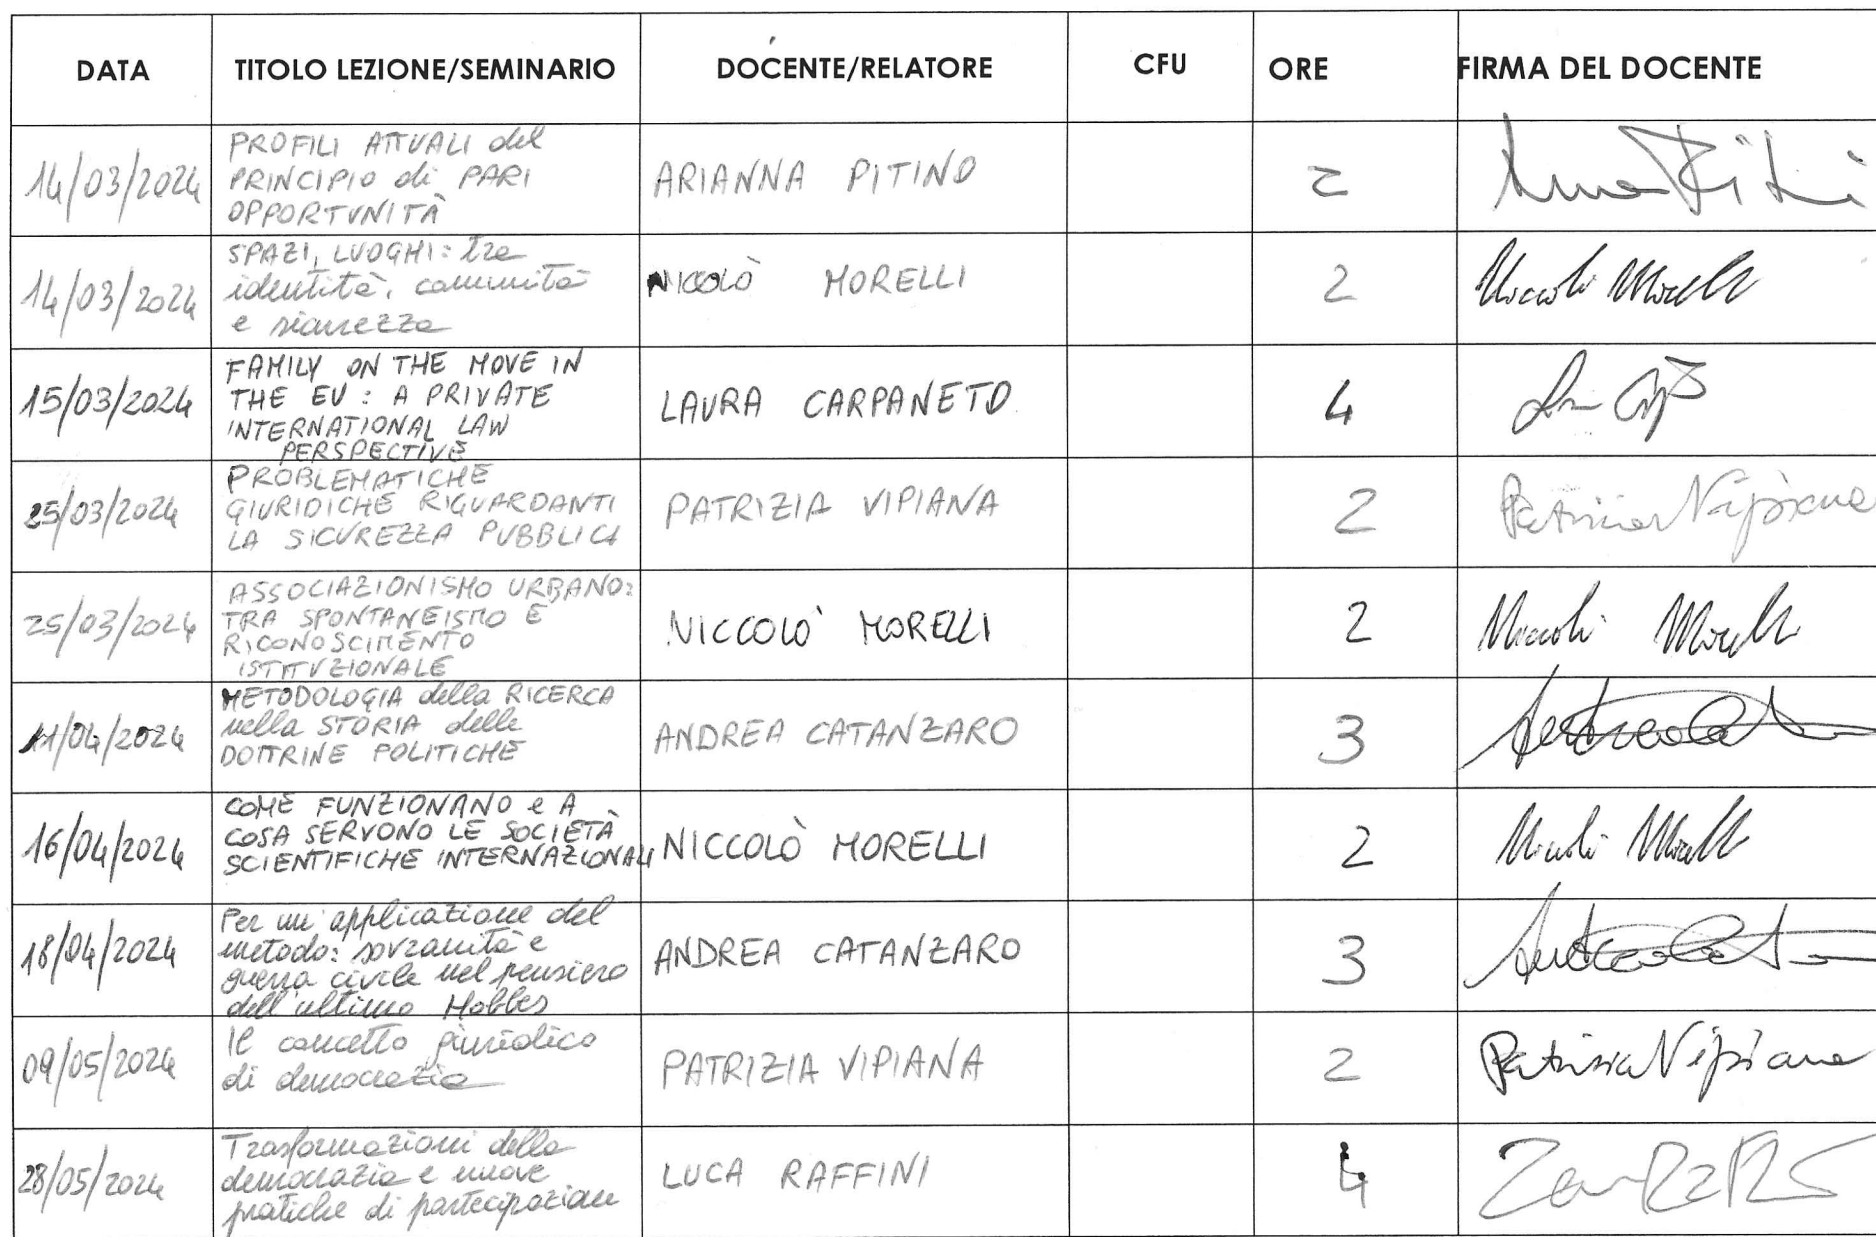 DATA TITOLO LEZIONE/SEMINARIO DOCENTE/RELATORE CFU ORE FIRMA DEL DOCENTE
14/03/2024 PROFILI ATTUALI del
PRINCIPIO di PARI
OPPORTUNITÀ
ARIANNA PITINO 2
14/03/2024 SPAZI, LUOGHI: tra
identità, comunità
e sicurezza
NICCOLÒ MORELLI 2 Niccolò Morelli
15/03/2024 FAMILY ON THE MOVE IN
THE EU: A PRIVATE
INTERNATIONAL LAW
PERSPECTIVE
LAURA CARPANETO 4
25/03/2024 PROBLEMATICHE
GIURIDICHE RIGUARDANTI
LA SICUREZZA PUBBLICA
PATRIZIA VIPIANA 2 Patrizia Vipiana
25/03/2024 ASSOCIAZIONISMO URBANO:
TRA SPONTANEISMO E
RICONOSCIMENTO
ISTITUZIONALE
NICCOLÒ MORELLI 2 Niccolò Morelli
11/04/2024 METODOLOGIA della RICERCA
nella STORIA delle
DOTTRINE POLITICHE
ANDREA CATANZARO 3
16/04/2024 COME FUNZIONANO e A
COSA SERVONO LE SOCIETÀ
SCIENTIFICHE INTERNAZIONALI
NICCOLÒ MORELLI 2 Niccolò Morelli
18/04/2024 Per un'applicazione del
metodo: sovranità e
guerra civile nel pensiero
dell'ultimo Hobbes
ANDREA CATANZARO 3
09/05/2024 Il concetto giuridico
di democrazia
PATRIZIA VIPIANA 2 Patrizia Vipiana
28/05/2024 Trasformazioni della
democrazia e nuove
pratiche di partecipazione
LUCA RAFFINI 4